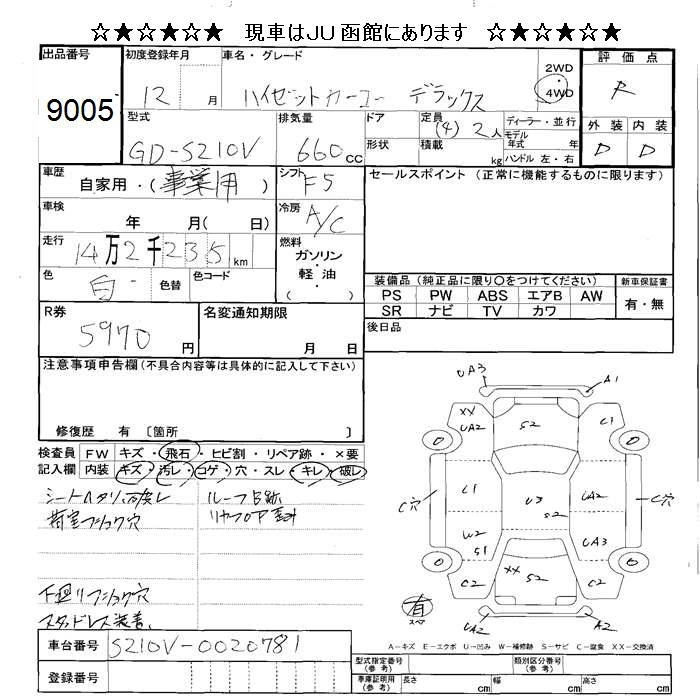 ☆★☆★☆ 現車はJU函館にあります ☆★☆★☆
出品番号
9005
初度登録年月
12 月
車名・グレード
ハイゼットカーゴ デラックス
2WD
4WD
評価点
R
外装 内装
D D
型式
GD-S210V
排気量
660 cc
ドア
形状
定員
(4) 2人
積載 kg
ディーラー・並行
モデル
年式 年
ハンドル 左・右
車歴
自家用・(事業用)
シフト
F5
車検
年 月( 日)
冷房
A/C
走行
14万2千235km
燃料
ガソリン
・
軽油
( )
色
白 色替
色コード
セールスポイント (正常に機能するものに限ります)
装備品 (純正品に限り〇をつけてください)
PS PW ABS エアB AW
SR ナビ TV カワ
新車保証書
有・無
後日品
R券
5970 円
名変通知期限
月 日
注意事項申告欄 (不具合内容等は具体的に記入して下さい)
修復歴 有 〔箇所 〕
検査員
記入欄
FW キズ・飛石・ヒビ割・リペア跡・×要
内装 キズ・汚レ・コゲ・穴・スレ・キレ・破レ
荷室フショク穴
下廻りフショク穴
スタッドレス装着
車台番号
S210V-0020781
登録番号
UA3 A1
XX
UA2 S2 C1
C穴 U1 U3 UA2 C穴
S2
W2
S1 UA3
C2 XX S2 C2
有
スペア
UA2 A2
A-キズ E-エクボ U-凹み W-補修跡 S-サビ C-腐食 XX-交換済
型式指定番号
(参考)
類別区分番号
(参考)
車庫証明
(参考)
長さ cm 幅 cm 高さ cm